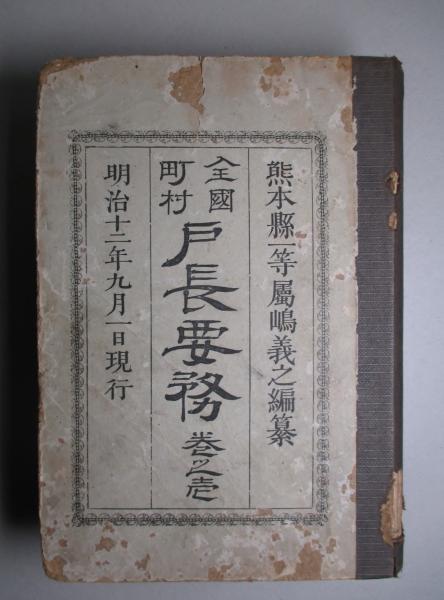 熊本縣一等屬嶋義之編纂
全國
町村
戸長要務 巻之壱
明治十二年九月一日現行